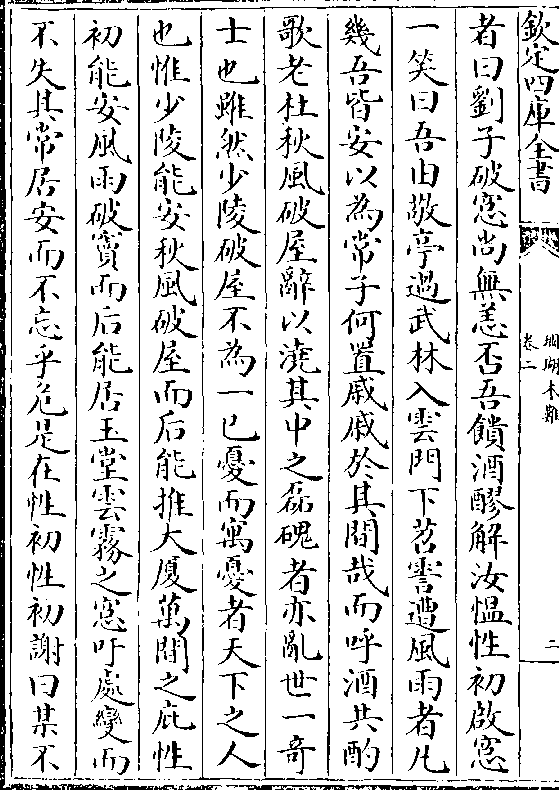 欽定四庫全書
珊瑚木難
卷二
二
者曰劉子破窓尚無恙否吾饋酒醪解汝愠性初啟窓
一笑曰吾由敬亭過武林入雲門下苕霅遭風雨者凡
幾吾皆安以為常子何置戚戚於其間哉而呼酒共酌
歌老杜秋風破屋辭以澆其中之磊磈者亦亂世一奇
士也雖然少陵破屋不為一已憂而寓憂者天下之人
也惟少陵能安秋風破屋而后能推大厦萬間之庇性
初能安風雨破竇而后能居玉堂雲霧之窓吁處變而
不失其常居安而不忘乎危是在性初性初謝曰某不